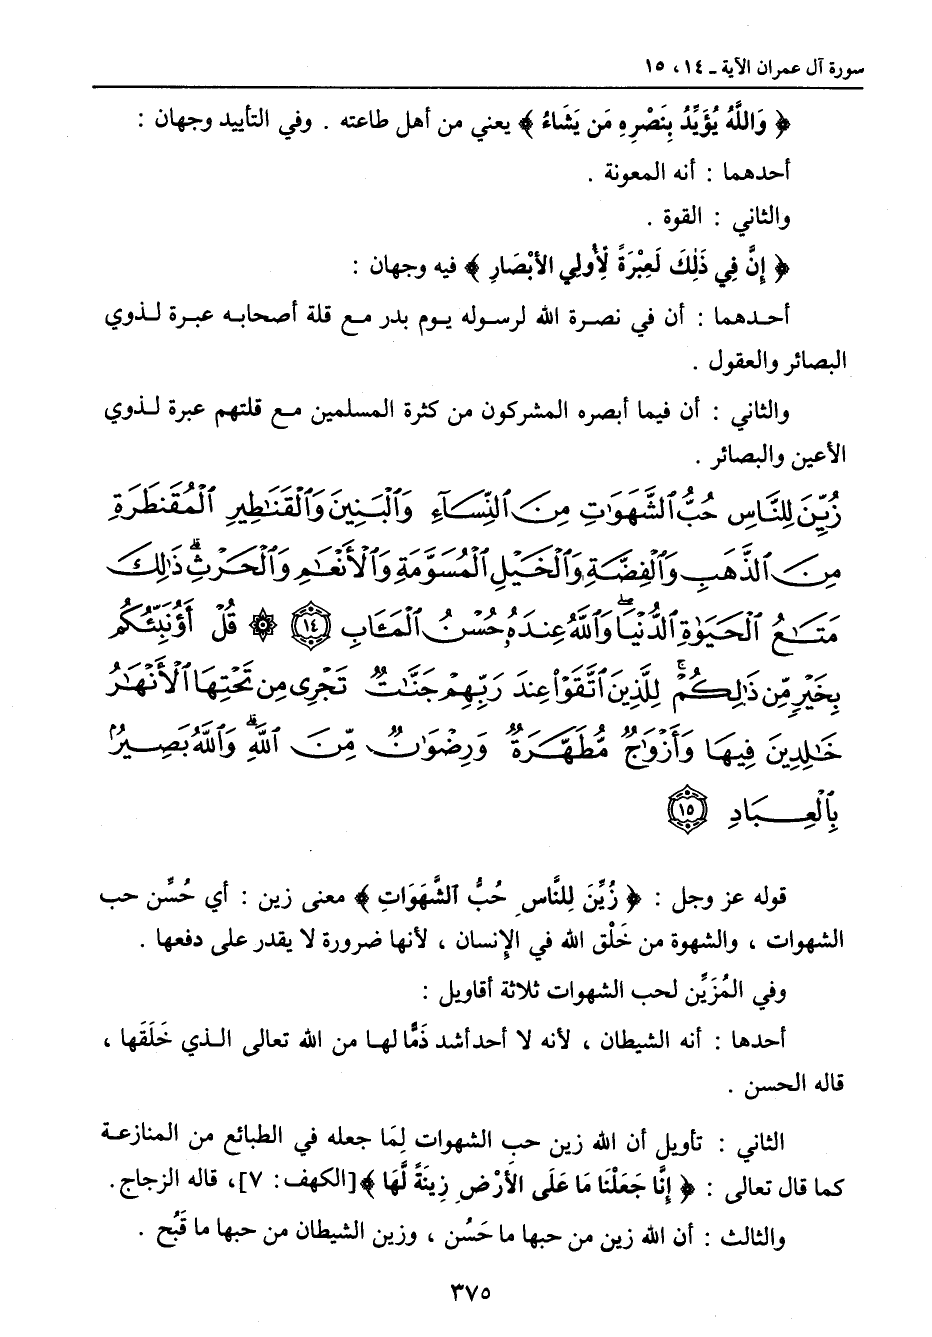 سورة آل عمران الآية ـ ١٤، ١٥
﴿ وَاللَّهُ يُؤَيِّدُ بِنَصْرِهِ مَن يَشَاءُ ﴾ يعني من أهل طاعته . وفي التأييد وجهان :
أحدهما : أنه المعونة .
والثاني : القوة .
﴿ إِنَّ فِي ذَلِكَ لَعِبْرَةً لِأُولِي الأَبْصَارِ ﴾ فيه وجهان :
أحدهما : أن في نصرة الله لرسوله يوم بدر مع قلة أصحابه عبرة لذوي
البصائر والعقول .
والثاني : أن فيما أبصره المشركون من كثرة المسلمين مع قلتهم عبرة لذوي
الأعين والبصائر .
زُيِّنَ لِلنَّاسِ حُبُّ ٱلشَّهَوَٰتِ مِنَ ٱلنِّسَآءِ وَٱلْبَنِينَ وَٱلْقَنَٰطِيرِ ٱلْمُقَنطَرَةِ
مِنَ ٱلذَّهَبِ وَٱلْفِضَّةِ وَٱلْخَيْلِ ٱلْمُسَوَّمَةِ وَٱلْأَنْعَٰمِ وَٱلْحَرْثِ ۗ ذَٰلِكَ
مَتَٰعُ ٱلْحَيَوٰةِ ٱلدُّنْيَا ۖ وَٱللَّهُ عِندَهُۥ حُسْنُ ٱلْمَـَٔابِ ١٤ ۞ قُلْ أَؤُنَبِّئُكُم
بِخَيْرٍ مِّن ذَٰلِكُمْ ۚ لِلَّذِينَ ٱتَّقَوْا۟ عِندَ رَبِّهِمْ جَنَّٰتٌ تَجْرِى مِن تَحْتِهَا ٱلْأَنْهَٰرُ
خَٰلِدِينَ فِيهَا وَأَزْوَٰجٌ مُّطَهَّرَةٌ وَرِضْوَٰنٌ مِّنَ ٱللَّهِ ۗ وَٱللَّهُ بَصِيرٌۢ
بِٱلْعِبَادِ ١٥
قوله عز وجل : ﴿ زُيِّنَ لِلنَّاسِ حُبُّ الشَّهَوَاتِ ﴾ معنى زين : أي حُسِّن حب
الشهوات ، والشهوة من خَلْق الله في الإِنسان ، لأنها ضرورة لا يقدر على دفعها .
وفي المُزَيِّن لحب الشهوات ثلاثة أقاويل :
أحدها : أنه الشيطان ، لأنه لا أحد أشد ذَمًّا لها من الله تعالى الذي خَلَقَها ،
قاله الحسن .
الثاني : تأويل أن الله زين حب الشهوات لِمَا جعله في الطبائع من المنازعة
كما قال تعالى : ﴿ إِنَّا جَعَلْنَا مَا عَلَى الأَرْضِ زِينَةً لَّهَا ﴾[الكهف: ٧]، قاله الزجاج .
والثالث : أن الله زين من حبها ما حَسُن ، وزين الشيطان من حبها ما قَبُح .
٣٧٥